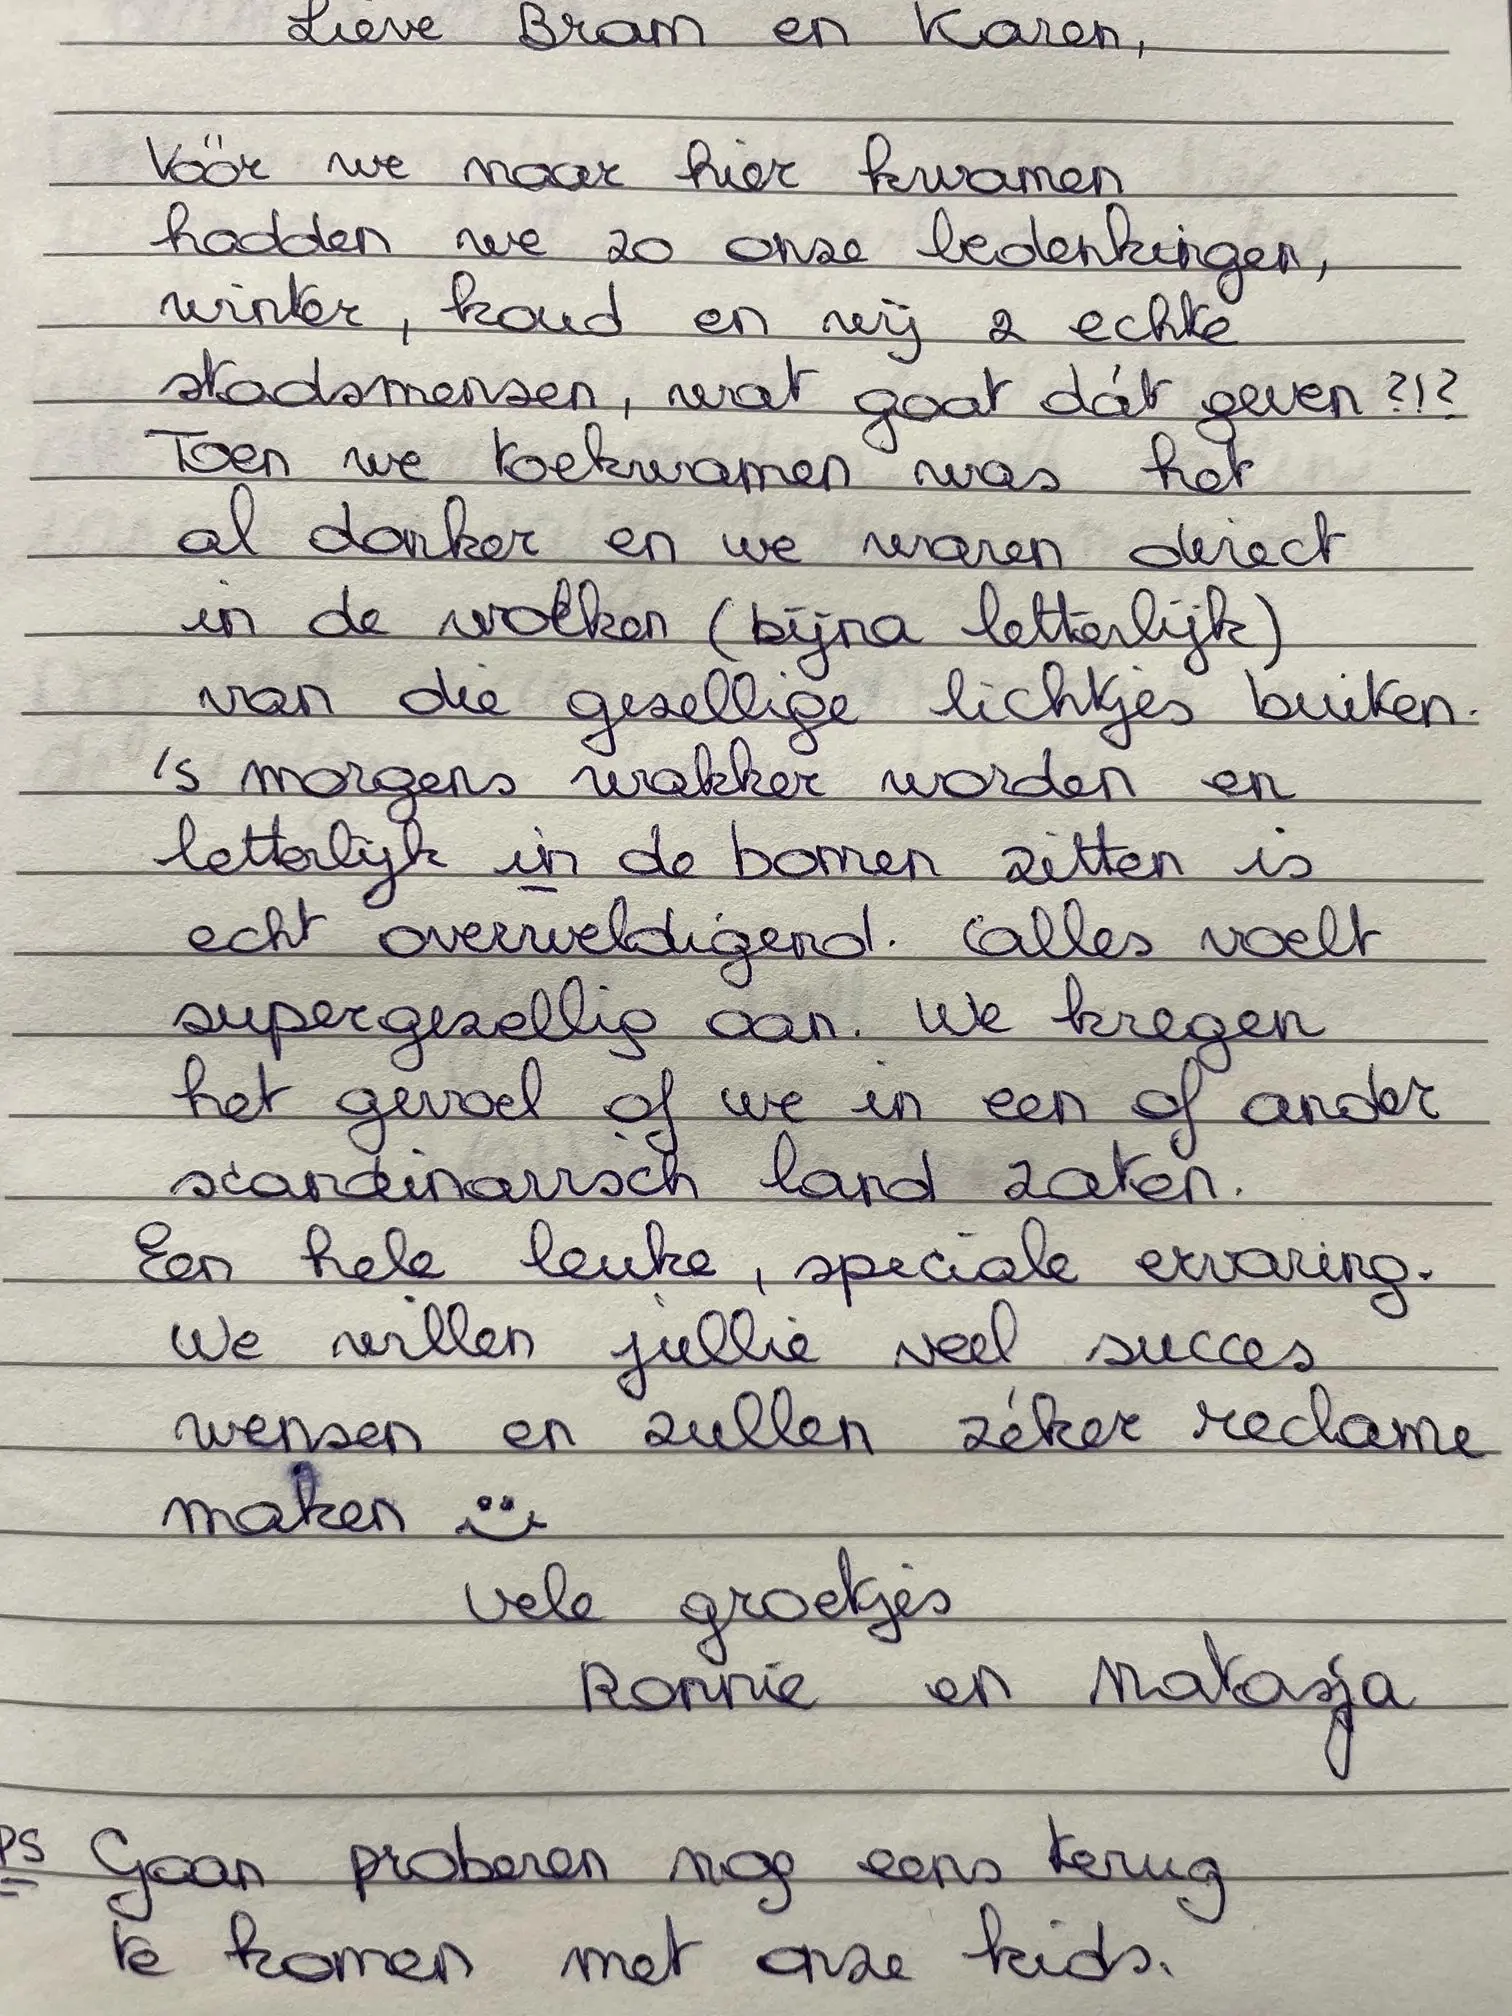 Lieve Bram en Karen,
Vöör we naar hier kwamen
hadden we zo onze bedenkingen,
winter, koud en wij 2 echte
stadsmensen, wat gaat dát geven ?!?
Toen we toekwamen was het
al donker en we waren direct
in de wolken (bijna letterlijk)
van die gezellige lichtjes buiten.
's morgens wakker worden en
letterlijk in de bomen zitten is
echt overweldigend. Calles voelt
supergezellig aan. We kregen
het gevoel of we in een of ander
scandinavisch land zaten.
Een hele leuke, speciale ervaring.
We willen jullie veel succes
wensen en zullen zéker reclame
maken :)
Vele groetjes
Ronnie en Natasja
PS Gaan proberen nog eens terug
te komen met onze kids.